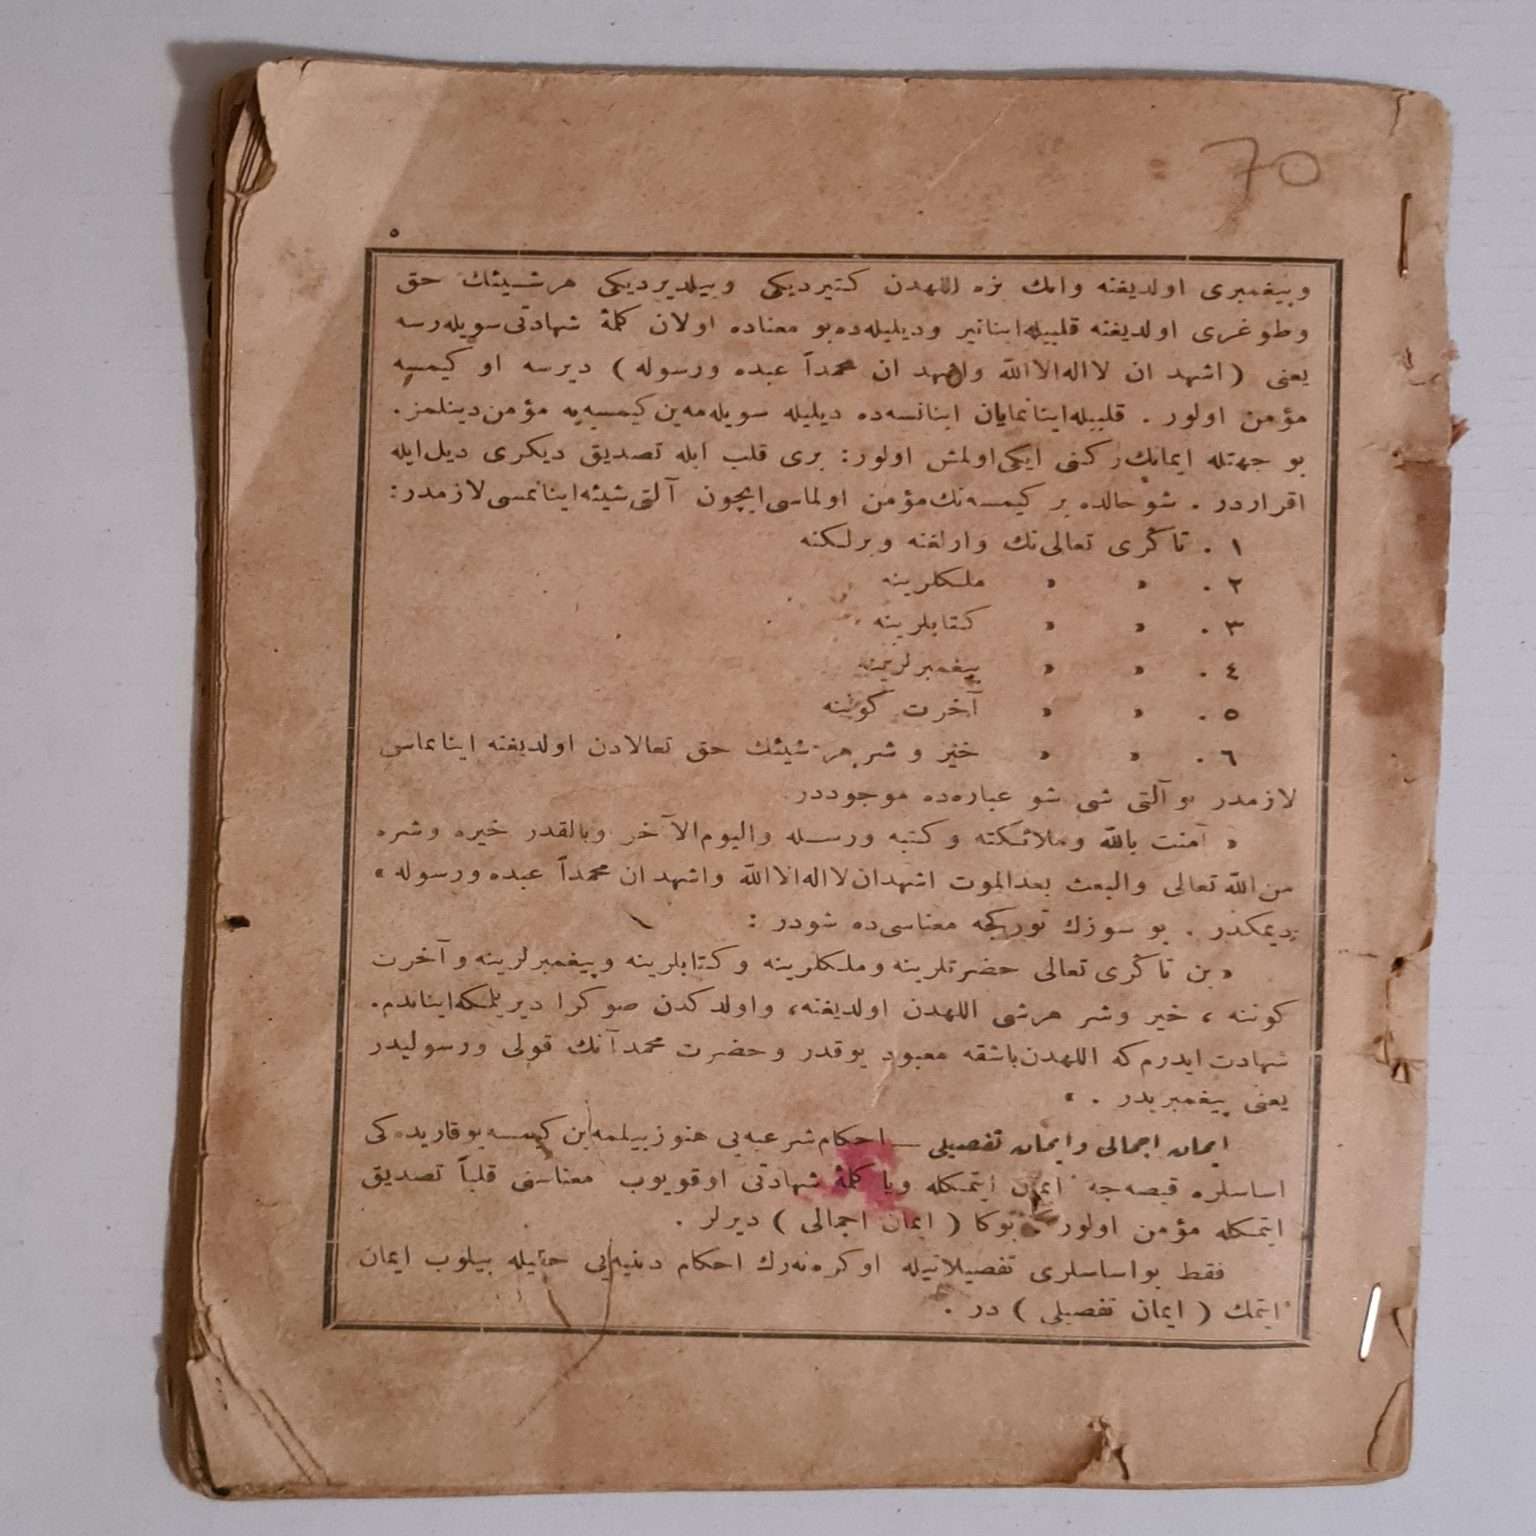 70
٥
وپیغمبری اولدیغنه وانك بزه اللهدن كتیردیكی وبیلدیردیكی هر شیئك حق
وطوغری اولدیغنه قلبیله اینانیر ودیلیله ده بو معناده اولان كلمۀ شهادتی سویله رسه
یعنی ( اشهد ان لا اله الا الله واشهد ان محمداً عبده ورسوله ) دیرسه او كیمسه
مؤمن اولور . قلبیله اینانمایان اینانسه ده دیلیله سویله مه ین كیمسه یه مؤمن دینلمز .
بو جهتله ایمانك ركنی ایكی اولمش اولور : بری قلب ایله تصدیق دیكری دیل ایله
اقراردر . شو حالده بر كیمسه نك مؤمن اولماسی ایچون آلتی شیئه اینانمسی لازمدر :
١ . تاڭری تعالی نك وارلغنه وبرلكنه
٢ . » » ملكلرینه
٣ . » » كتابلرینه
٤ . » » پیغمبرلرینه
٥ . » » آخرت كونینه
٦ . » » خیر و شر هر شیئك حق تعالادن اولدیغنه اینانماسی
لازمدر بو آلتی شی شو عباره ده موجوددر
« آمنت بالله وملائكته وكتبه ورسله والیوم الآخر وبالقدر خیره وشره
من الله تعالی والبعث بعد الموت اشهد ان لا اله الا الله واشهد ان محمداً عبده ورسوله »
دیمكدر . بو سوزك توركجه معناسی ده شودر :
« بن تاڭری تعالی حضرتلرینه وملكلرینه وكتابلرینه وپیغمبرلرینه وآخرت
كوننه ، خیر وشر هر شی اللهدن اولدیغنه ، واولدكدن صوكرا دیریلمكه ایناندم .
شهادت ایدرم كه اللهدن باشقه معبود یوقدر وحضرت محمد آنك قولی ورسولیدر
یعنی پیغمبریدر . »
ایمان اجمالی وایمان تفصیلی — احكام شرعیه یی هنوز بیلمه ین كیمسه یوقاریده كی
اساسلره قیصه جه ایمان ایتمكله ویا كلمۀ شهادتی اوقویوب معناسنی قلباً تصدیق
ایتمكله مؤمن اولور كه بوكا ( ایمان اجمالی ) دیرلر .
فقط بو اساسلری تفصیلاتیله اوكره نه رك احكام دینیه یی حقیله بیلوب ایمان
ایتمك ( ایمان تفصیلی ) در .